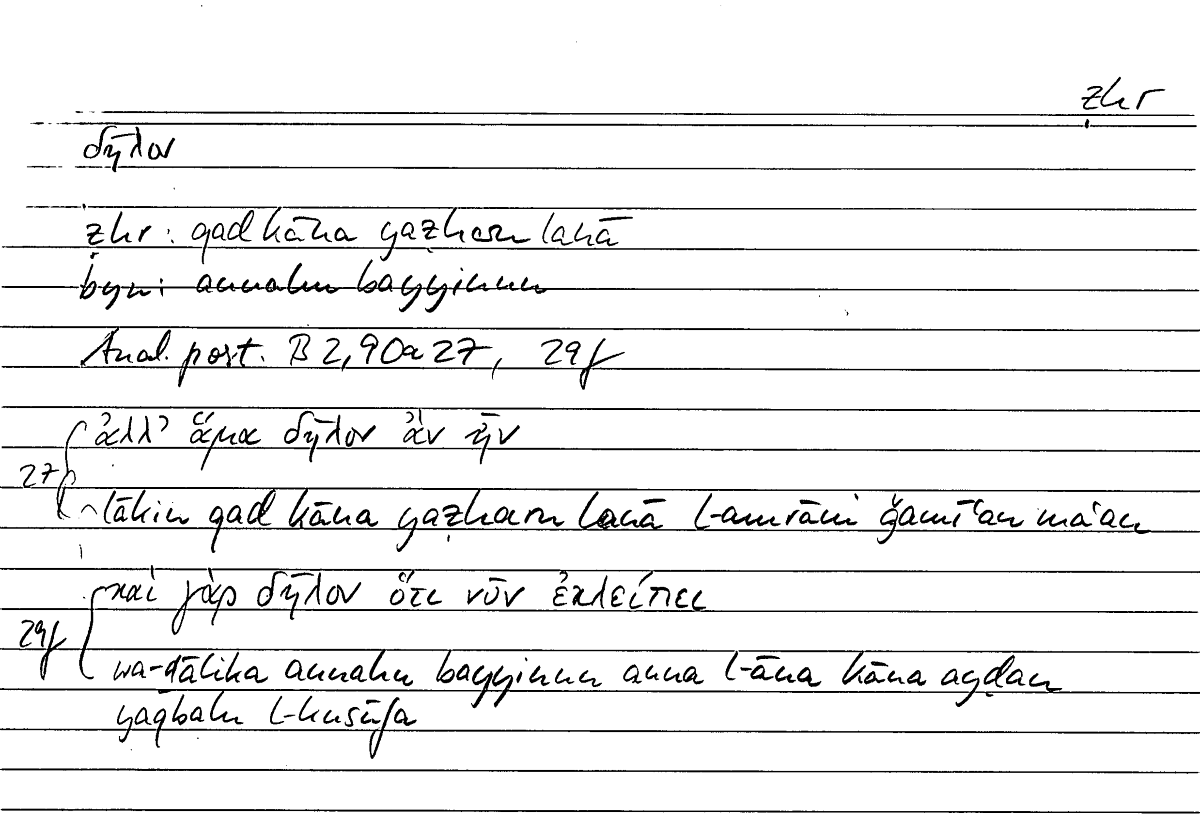 ẓhr
δῆλον
ẓhr: qad kāna yaẓharu lanā
byn: annahu bayyinun
Anal. post. B 2, 90a 27, 29f
ἀλλ’ ἅμα δῆλον ἂν ἦν
27
lākin qad kāna yaẓharu lanā l-amrāni ǧamīʿan maʿan
καὶ γὰρ δῆλον ὅτι νῦν ἐκλείπει
29f
wa-ḏālika annahu bayyinun anna l-āna kāna ayḍan
yaqbalu l-kusūfa